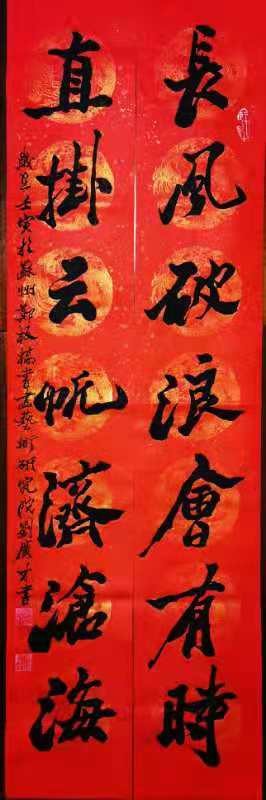 長風破浪會有時
直掛云帆濟滄海
歲在壬寅於蘇州鄭板橋書畫藝術研究院劉廣才書